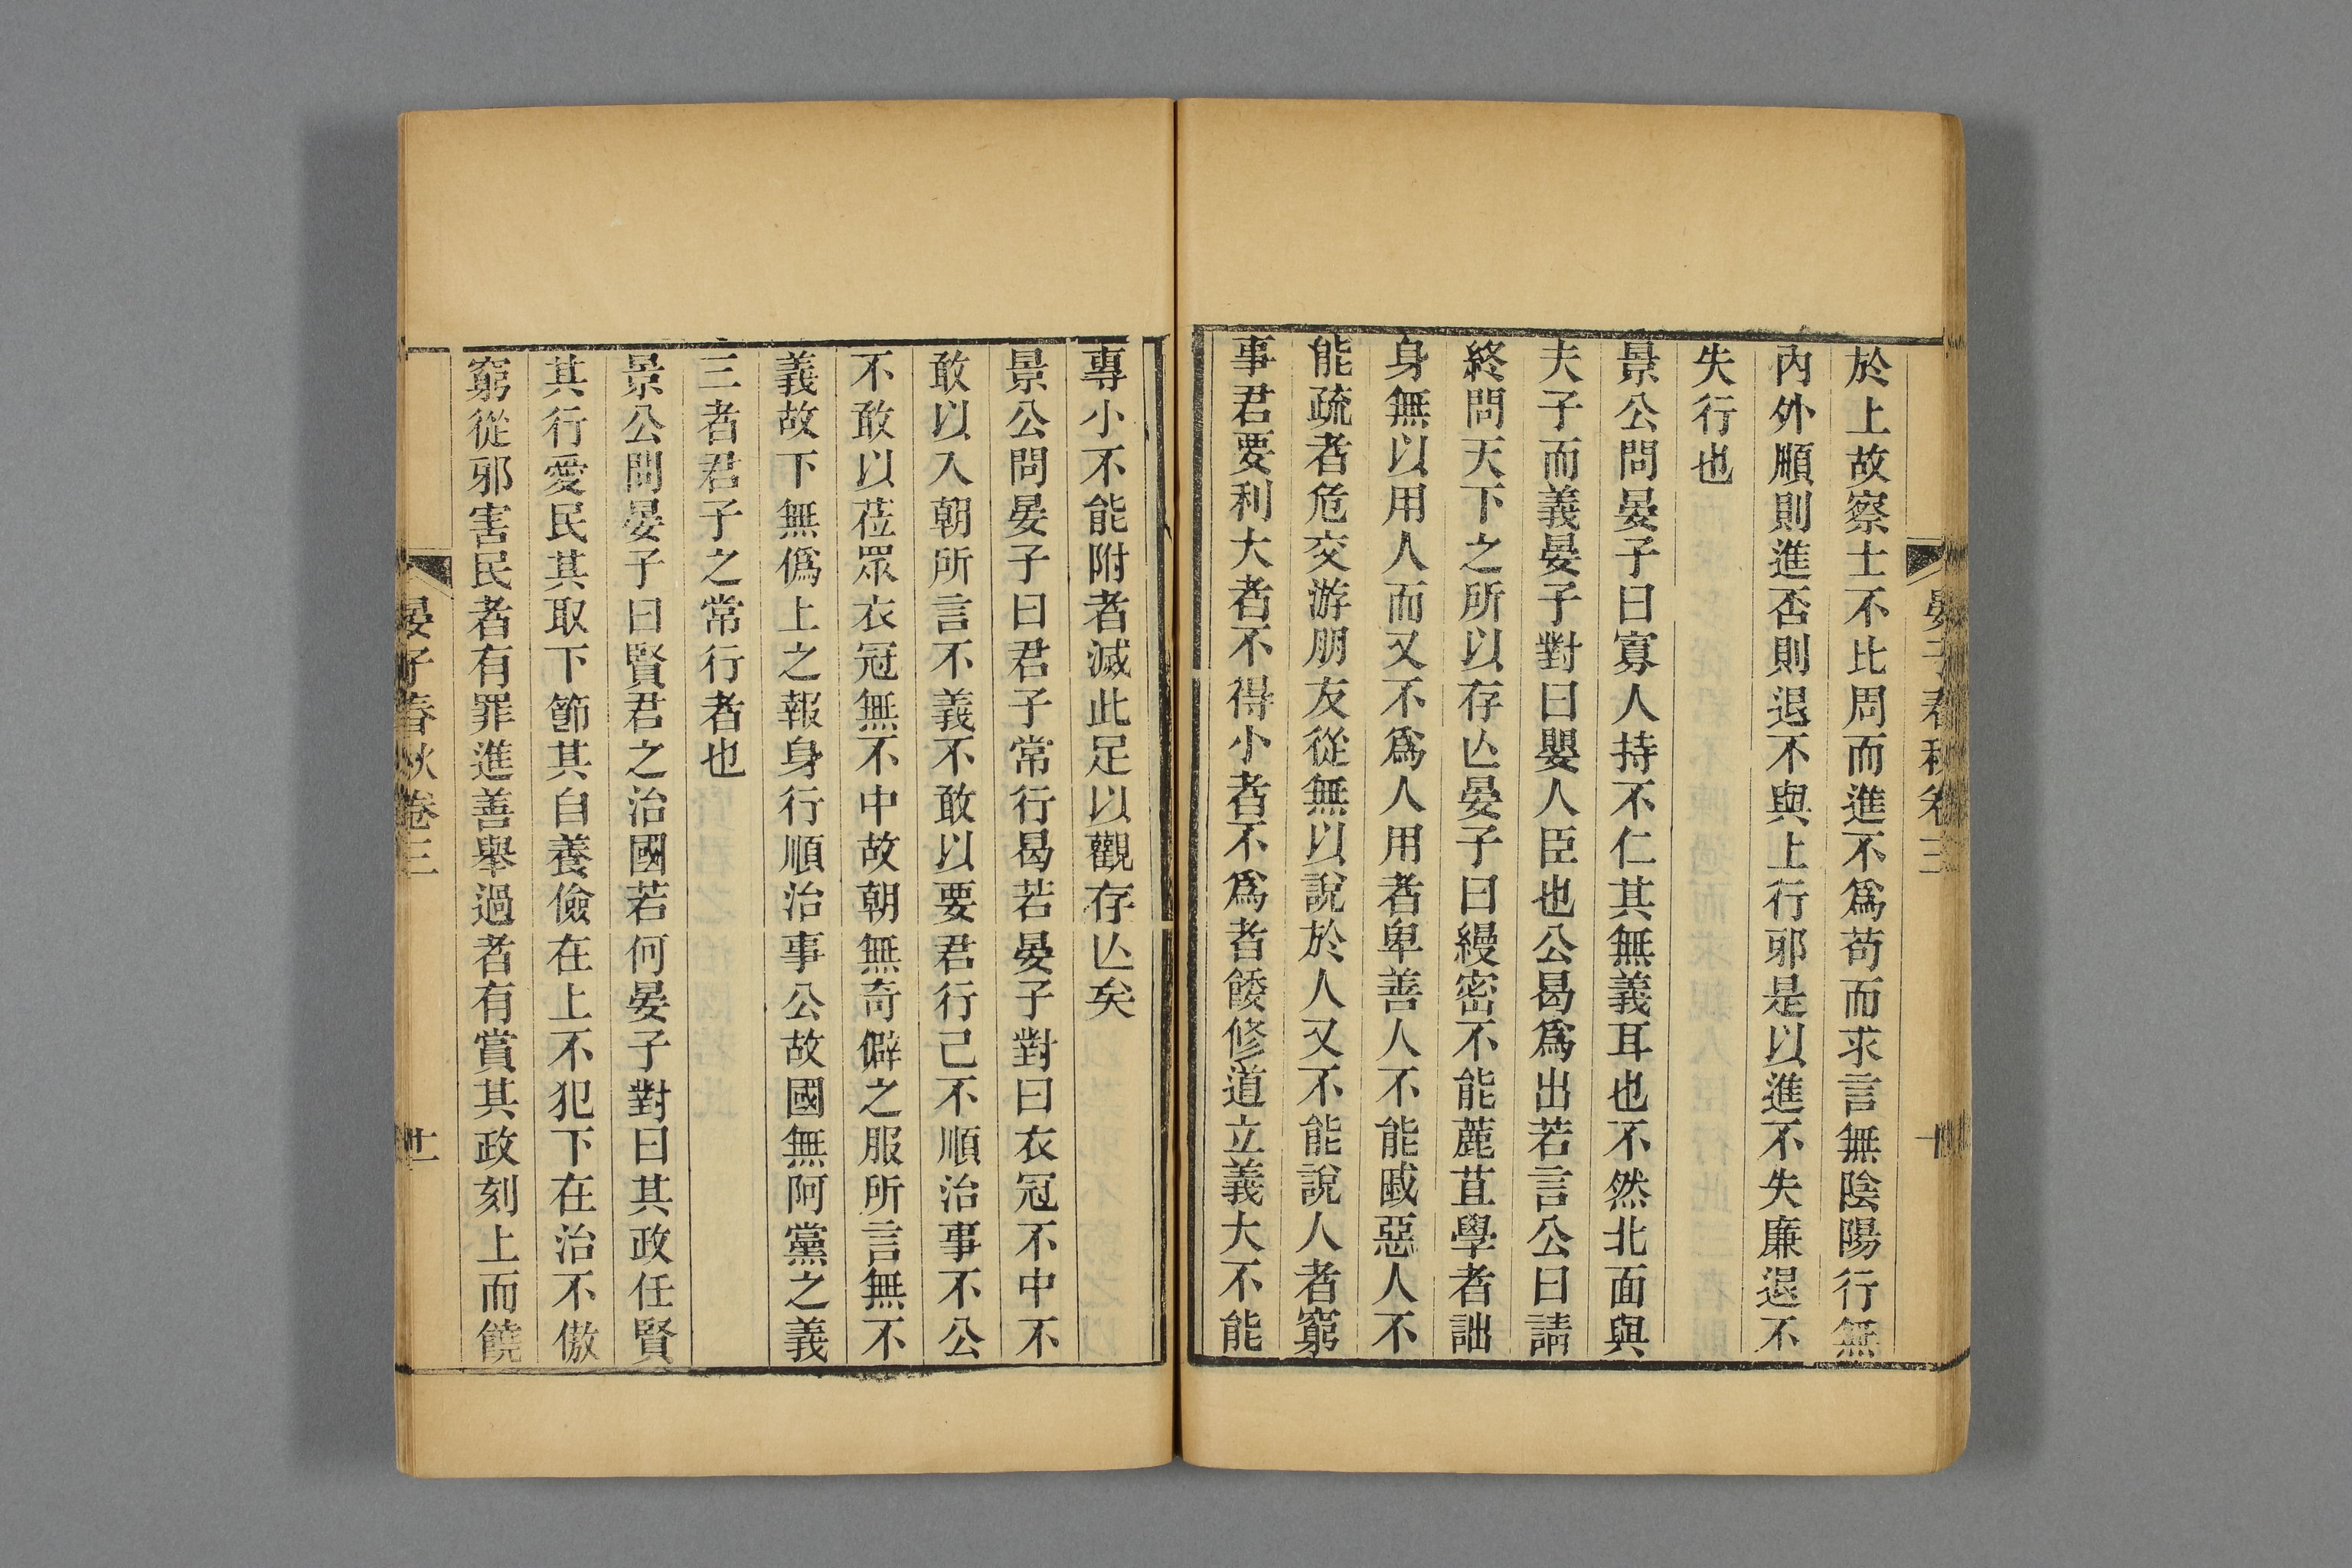 於上故察士不比周而進不爲苟而求言無陰陽行無
內外順則進否則退不與上行邪是以進不失廉退不
失行也
景公問晏子曰寡人持不仁其無義耳也不然北面與
夫子而義晏子對曰嬰人臣也公曷爲出若言公曰請
終問天下之所以存亾晏子曰縵密不能蔍苴學者詘
身無以用人而又不爲人用者卑善人不能戚惡人不
能疏者危交游朋友從無以說於人又不能說人者窮
事君要利大者不得小者不爲者餒修道立義大不能
專小不能附者滅此足以觀存亾矣
景公問晏子曰君子常行曷若晏子對曰衣冠不中不
敢以入朝所言不義不敢以要君行己不順治事不公
不敢以莅眾衣冠無不中故朝無奇僻之服所言無不
義故下無僞上之報身行順治事公故國無阿黨之義
三者君子之常行者也
景公問晏子曰賢君之治國若何晏子對曰其政任賢
其行愛民其取下節其自養儉在上不犯下在治不傲
窮從邪害民者有罪進善舉過者有賞其政刻上而饒
晏子春秋卷三
十一